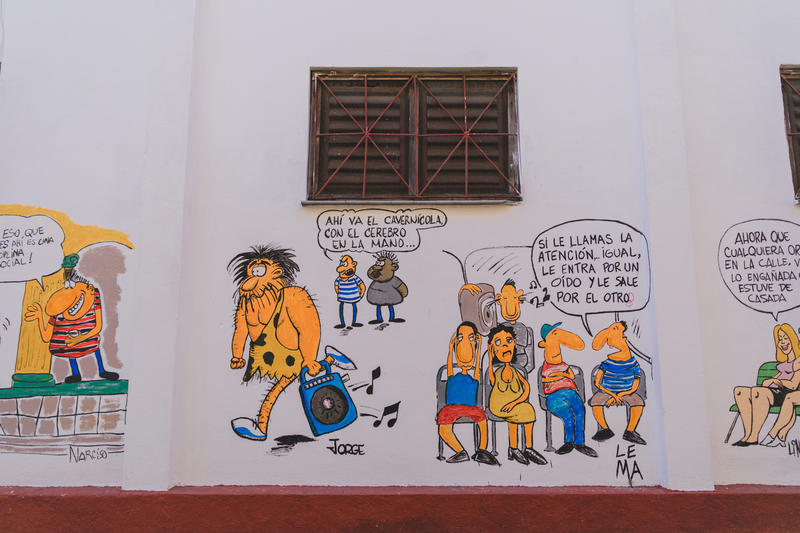 ESO, QUE
AHÍ ES UNA
SOCIAL!
NARCISO
AHÍ VA EL CAVERNÍCOLA,
CON EL CEREBRO
EN LA MANO...
JORGE
SI LE LLAMAS LA
ATENCIÓN... IGUAL,
LE ENTRA POR UN
OÍDO Y LE SALE
POR EL OTRO
LE
MA
AHORA QUE
CUALQUIERA
EN LA CALLE,
LO ENGAÑADA
ESTUVE DE
CASADA